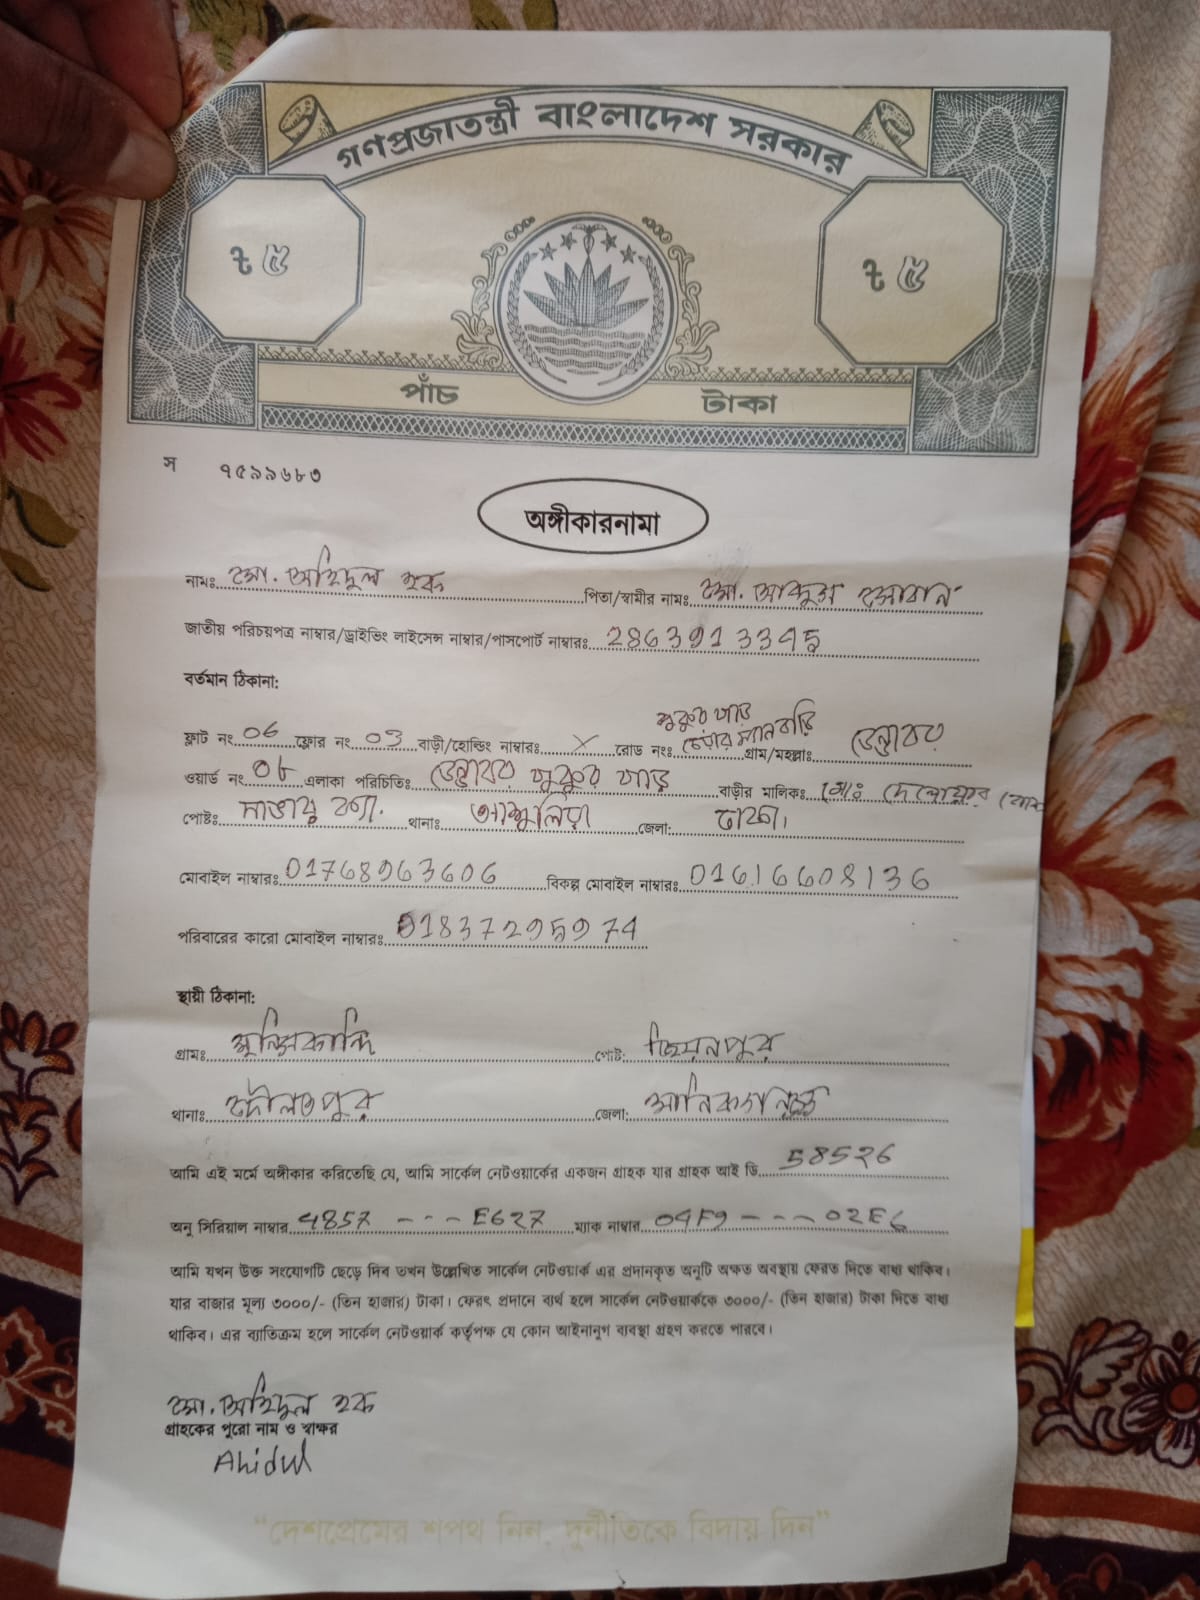 গণপ্রজাতন্ত্রী বাংলাদেশ সরকার
৳ ৫ ৳ ৫
পাঁচ টাকা
স ৭৫৯৯৬৮৩
অঙ্গীকারনামা
নামঃ মো. অহিদুল হক পিতা/স্বামীর নামঃ মো.
জাতীয় পরিচয়পত্র নাম্বার/ড্রাইভিং লাইসেন্স নাম্বার/পাসপোর্ট নাম্বারঃ 2863913395
বর্তমান ঠিকানা:
ফ্লাট নং 06 ফ্লোর নং 03 বাড়ী/হোল্ডিং নাম্বারঃ X রোড নংঃ পুকুর পাড় চেয়ারম্যান বাড়ি গ্রাম/মহল্লাঃ ডেন্ডাবর
ওয়ার্ড নং 08 এলাকা পরিচিতিঃ ডেন্ডাবর পুকুর পাড় বাড়ীর মালিকঃ মোঃ দেলোয়ার
পোষ্টঃ থানাঃ আশুলিয়া জেলা: ঢাকা।
মোবাইল নাম্বারঃ 01768963606 বিকল্প মোবাইল নাম্বারঃ 01616608136
পরিবারের কারো মোবাইল নাম্বারঃ 01837295974
স্থায়ী ঠিকানা:
গ্রামঃ মুন্সিকান্দি পোষ্ট: জিয়নপুর
থানাঃ দৌলতপুর জেলা: মানিকগঞ্জ
আমি এই মর্মে অঙ্গীকার করিতেছি যে, আমি সার্কেল নেটওয়ার্কের একজন গ্রাহক যার গ্রাহক আই ডি 58526
অনু সিরিয়াল নাম্বার 4857 --- E627 ম্যাক নাম্বার 04F9 --- 02E6
আমি যখন উক্ত সংযোগটি ছেড়ে দিব তখন উল্লেখিত সার্কেল নেটওয়ার্ক এর প্রদানকৃত অনুটি অক্ষত অবস্থায় ফেরত দিতে বাধ্য থাকিব।
যার বাজার মূল্য ৩০০০/- (তিন হাজার) টাকা। ফেরৎ প্রদানে ব্যর্থ হলে সার্কেল নেটওয়ার্ককে ৩০০০/- (তিন হাজার) টাকা দিতে বাধ্য
থাকিব। এর ব্যাতিক্রম হলে সার্কেল নেটওয়ার্ক কর্তৃপক্ষ যে কোন আইনানুগ ব্যবস্থা গ্রহণ করতে পারবে।
মো. অহিদুল হক
গ্রাহকের পুরো নাম ও স্বাক্ষর
Ahidul
“দেশপ্রেমের শপথ নিন, দুর্নীতিকে বিদায় দিন”